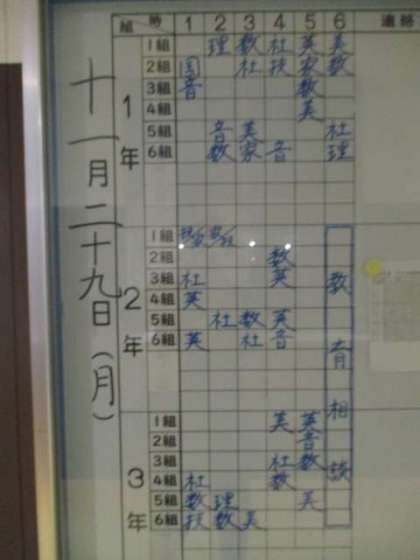 十一月二十九日(月)
組 時 1 2 3 4 5 6 連絡
1年
1組 理 数 社 英 美
2組 国 社 技 家 数
3組 音 数
4組 英
5組 音 英 社
6組 数 家 音 理
2年
1組
2組 数
3組 社 英
4組 英
5組 社 数 英
6組 英 社 音
教育相談
3年
1組 英 英
2組 音
3組 社 数
4組 社 数
5組 数 理 美
6組 技 数 美